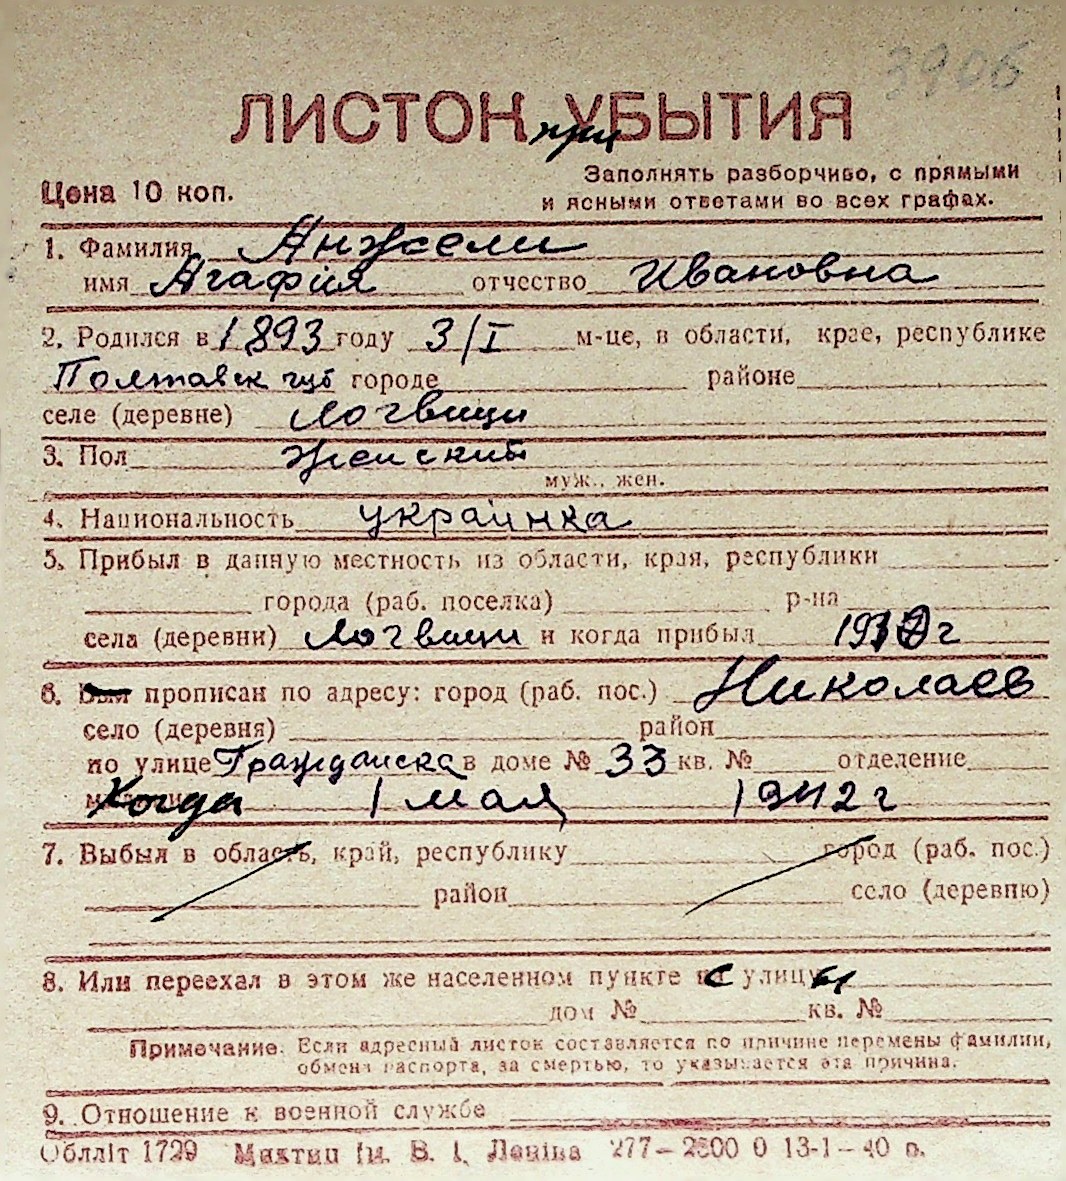 3906
ЛИСТОК при УБЫТИЯ
Цена 10 коп.
Заполнять разборчиво, с прямыми
и ясными ответами во всех графах.
1. Фамилия Анжели
имя Агафия отчество Ивановна
2. Родился в 1893 году 3/I м-це, в области, крае, республике
Полтавск губ городе районе
селе (деревне) Логвици
3. Пол женский
муж., жен.
4. Национальность украинка
5. Прибыл в данную местность из области, края, республики
города (раб. поселка) р-на
села (деревни) Логвици и когда прибыл г
6. Был прописан по адресу: город (раб. пос.) Николаев
село (деревня) район
по улице Гражданска в доме № 33 кв. № отделение
Когда 1 мая 1942 г
7. Выбыл в область, край, республику город (раб. пос.)
район село (деревню)
8. Или переехал в этом же населенном пункте с улицы
дом № кв. №
Примечание. Если адресный листок составляется по причине перемены фамилии,
обмена паспорта, за смертью, то указывается эта причина.
9. Отношение к военной службе
Обллiт 1729 Миктип iм. В. І. Ленiна 277—2500 0 13-1—40 р.